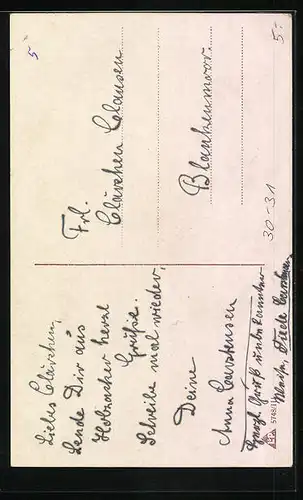 Liebes Clärchen,
Sende Dir aus
herzl
Grüße.
Schreibe mal wieder,
Deine
Anna Carstensen
Herzl. Gruß unbekannter
Frl.
Clärchen Clausen
Blankenmoor.
30-31
5748/11
5
5.-